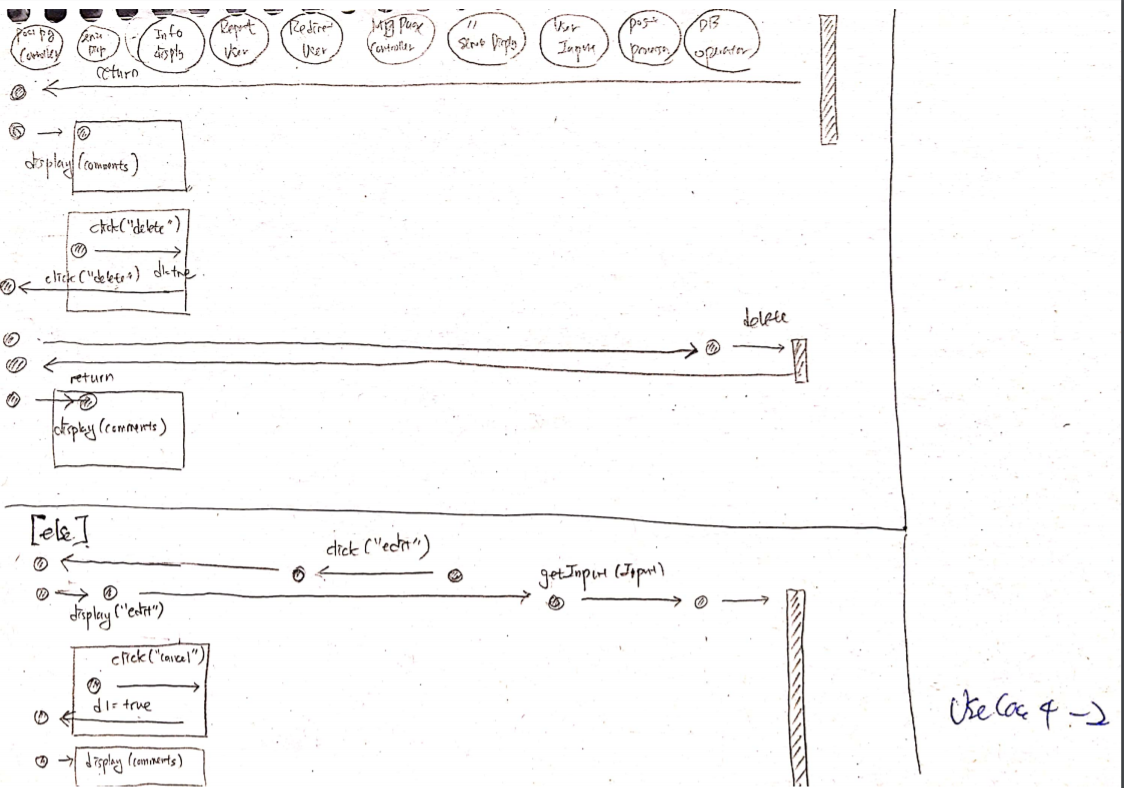 Controller
Info
disply
Report
User
Redirect
User
Mg Page
Controller
"
Disply
User
Input
post
process
DB
operator
return
display (comments)
click("delete")
d1=true
click("delete")
delete
return
display (comments)
[else]
click ("edit")
getInput (Input)
display ("edit")
click("cancel")
d1= true
display (comments)
Use Case 4 -2